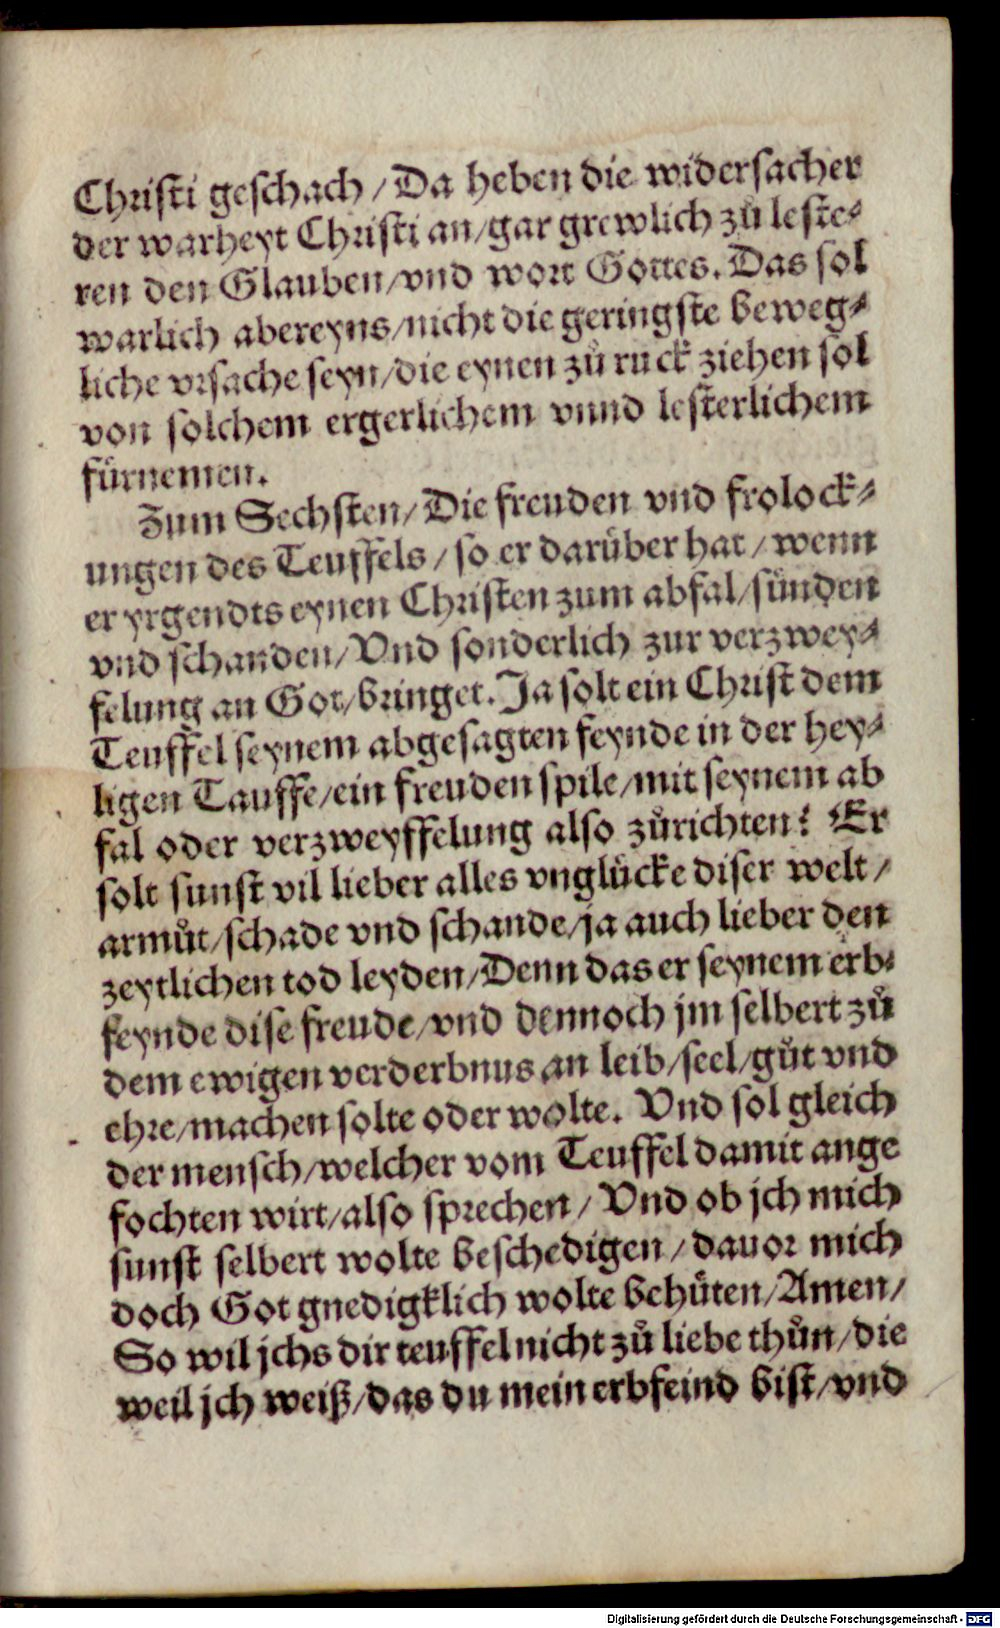 Christi geschach / Da heben die widersacher
der warheyt Christi an/gar grewlich zů leste⸗
ren den Glauben/vnd wort Gottes. Das sol
warlich abereyns/nicht die geringste beweg⸗
liche vrsache seyn/die eynen zů ruck ziehen sol
von solchem ergerlichem vnnd lesterlichem
fürnemen.
Zum Sechsten/ Die freuden vnd frolock⸗
ungen des Teuffels / so er darüber hat / wenn
er yrgendts eynen Christen zum abfal/sünden
vnd schanden/ Vnd sonderlich zur verzwey⸗
felung an Got/bringet. Ja solt ein Christ dem
Teuffel seynem abgesagten feynde in der hey⸗
ligen Tauffe/ein freuden spile/mit seynem ab
fal oder verzweyffelung also zůrichten? Er
solt sunst vil lieber alles vnglücke diser welt /
armůt/schade vnd schande/ja auch lieber den
zeytlichen tod leyden/Denn das er seynem erb⸗
feynde dise freude/vnd dennoch jm selbert zů
dem ewigen verderbnus an leib/seel/gůt vnd
ehre/machen solte oder wolte. Vnd sol gleich
der mensch/welcher vom Teuffel damit ange
fochten wirt/also sprechen / Vnd ob jch mich
sunst selbert wolte beschedigen / dauor mich
doch Got gnedigklich wolte behüten/Amen/
So wil jchs dir teuffel nicht zů liebe thůn/die
weil jch weiß/das du mein erbfeind bist/vnd
Digitalisierung gefördert durch die Deutsche Forschungsgemeinschaft - DFG